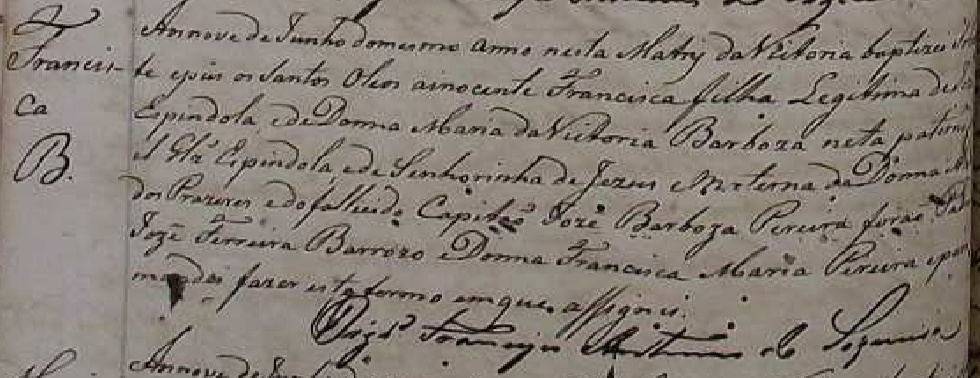 Francis-
ca
B.
Annove de Junho do mesmo anno nesta Matriz da Victoria baptizei
te e pus os Santos Oleos a inocente Francisca filha Legitima de
Espindola, e de Donna Maria da Victoria Barboza neta paterna
Espindola, e de Senhorinha de Jezus e Materna da Donna
dos Prazeres e do falhecido Capitaõ Jozé Barboza Pereira foraõ
Jozé Ferreira Barrozo e Donna Francisca Maria Pereira e para
mandei fazer este termo em que assignei.
Francisco
Annove de